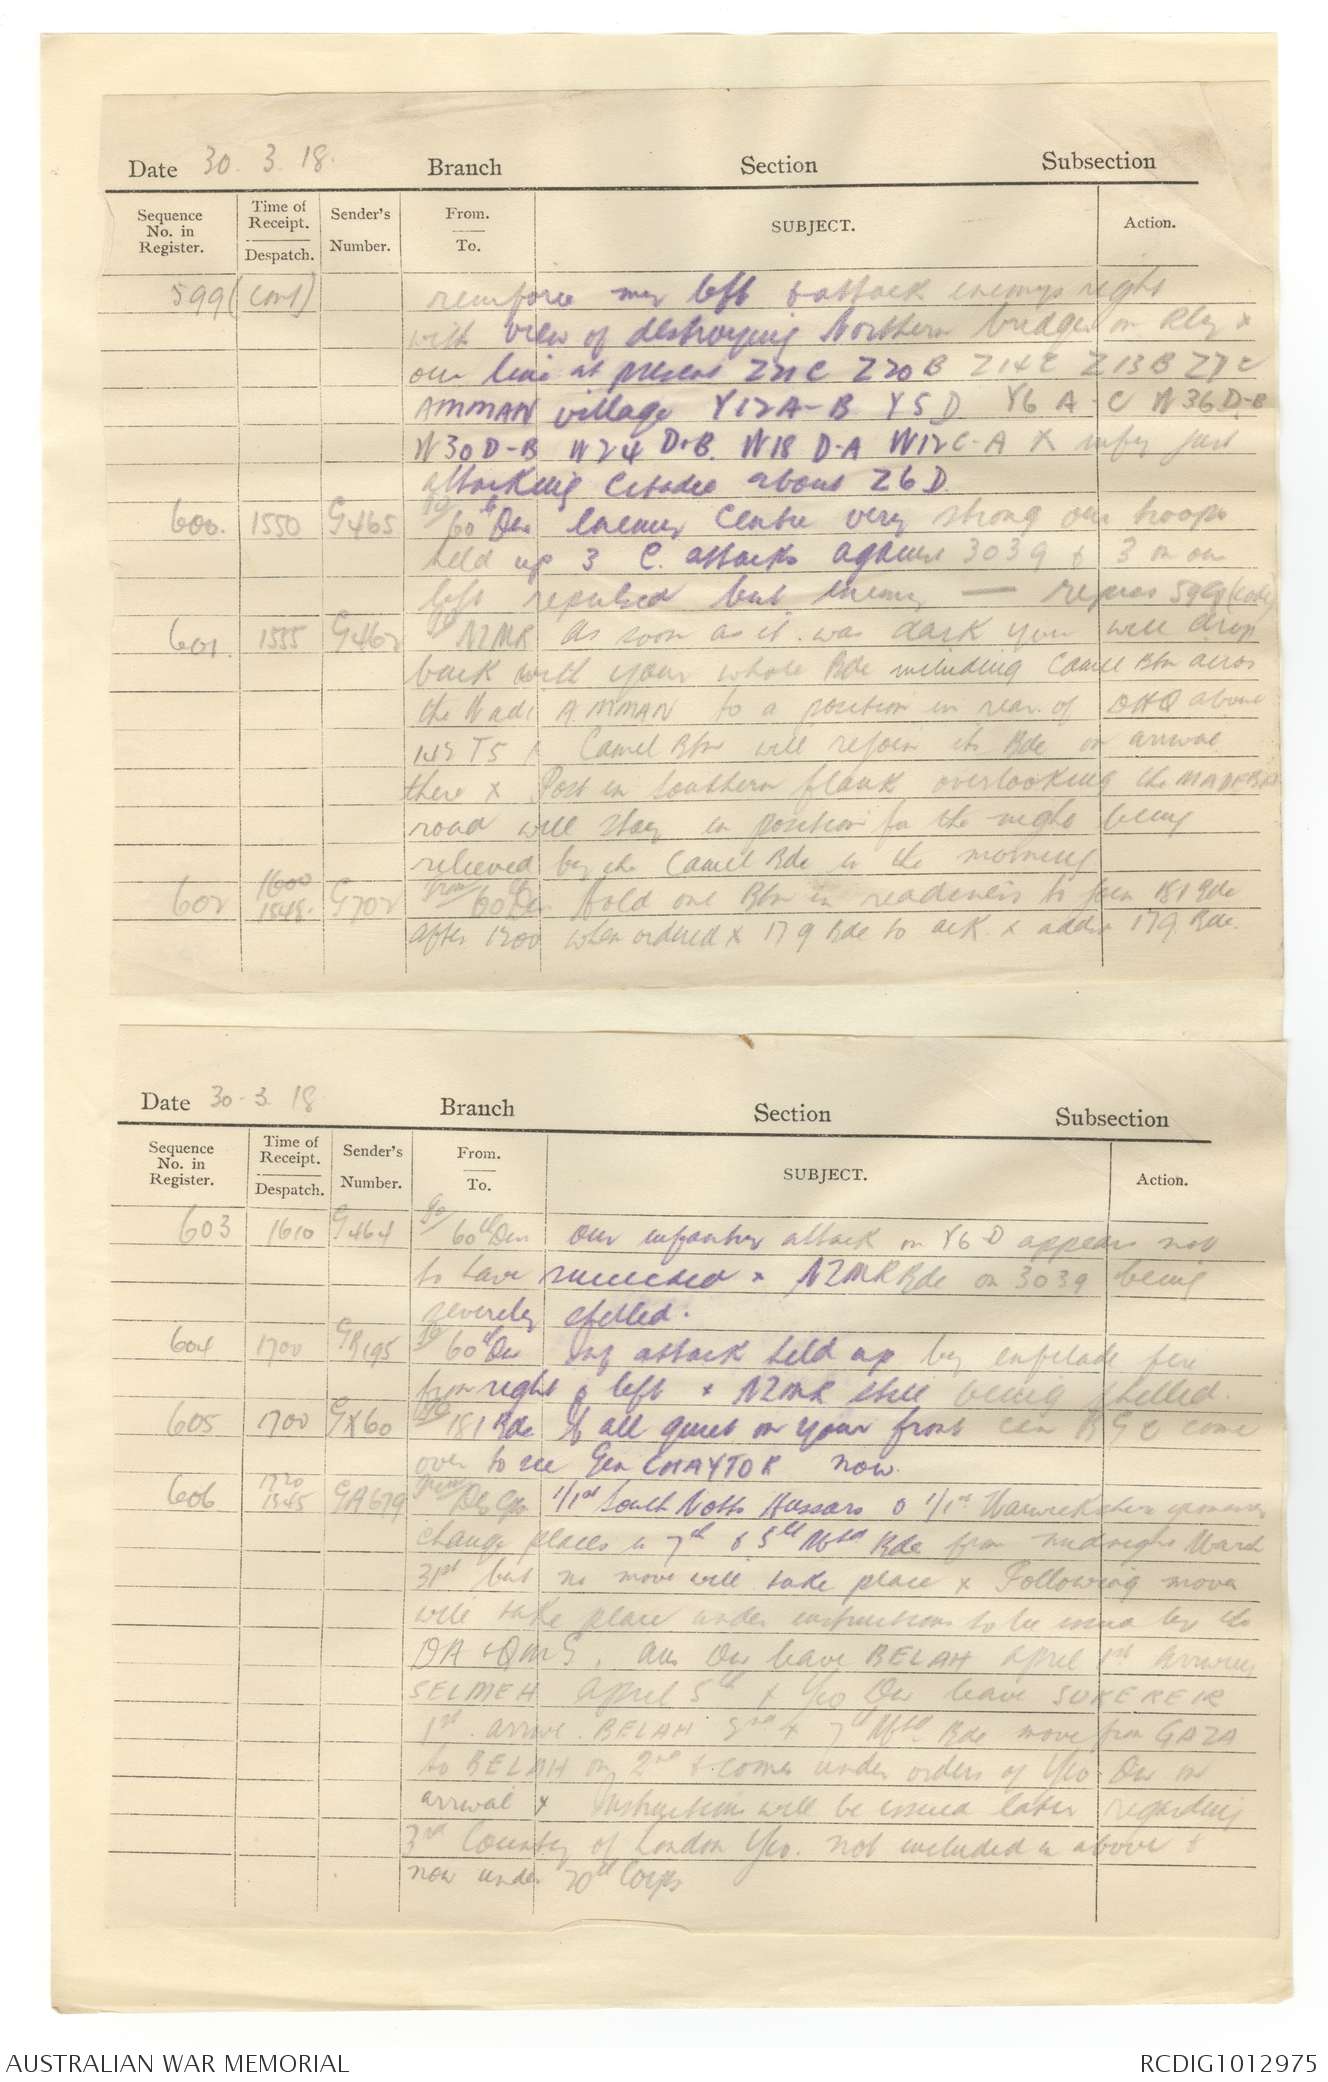 Date 30. 3. 18. Branch Section Subsection
Sequence No. in Register. Time of Receipt. Despatch. Sender's Number. From. To. SUBJECT. Action.
599 (cont) reinforce my left & attack enemys right
with view of destroying Northern bridge on Rly x
our line at present Z21C Z20B Z14C Z13B Z7C
AMMAN village Y12A-B Y5D Y6 A-C W36D-B
W30D-B W24 D-B. W18 D-A W12C-A X infy just
attacking Citadel about Z6D
600. 1550 G465 To 60th Div Enemy Centre very strong our troops
held up 3 C. attacks against 3039 & 3 on our
left repulsed but enemy — repeats 599 (
601. 1555 G462 To NZMR As soon as it was dark you will drop
back with your whole Bde including Camel Btn across
the Wadi AMMAN to a position in rear of DHQ about
T5 Camel Btn will rejoin its Bde on arrival
there x Post on Southern flank overlooking the MADEBA
road will stay in position for the night being
relieved by the Camel Bde in the morning
602 1600 1548. G702 From 60th Div Hold one Btn in readiness to join 181 Bde
after 1700 when ordered x 179 Bde to ack. x adds 179 Bde.
Date 30. 3. 18 Branch Section Subsection
Sequence No. in Register. Time of Receipt. Despatch. Sender's Number. From. To. SUBJECT. Action.
603 1610 G464 To 60th Div Our infantry attack on Y6 D appears not
to have succeeded x NZMR Bde on 3039 being
severely shelled.
604 1700 GR195 To 60th Div Inf attack held up by enfilade fire
from right & left x NZMR still being shelled
605 1700 GX60 To 181 Bde If all quiet on your front can BGC come
over to see Gen CHAYTOR now.
606 1720 1345 GA679 From Des Cps 1/1st South Notts Hussars & 1/1st Warwickshire yeomanry
change places in 7th & 5th Mtd Bde from midnight March
31st but no move will take place x Following moves
will take place under instructions to be issued by the
DA & QMG. Aus Div leave BELAH April 1st arriving
SELMEH April 5th x Yeo Div leave SUKEREIR
1st. arrive BELAH 2nd x 7th Mtd Bde move from GAZA
to BELAH on 2nd & comes under orders of Yeo. Div on
arrival x Instructions will be issued later regarding
3rd County of London Yeo. not included in above &
now under 20th Corps
AUSTRALIAN WAR MEMORIAL RCDIG1012975